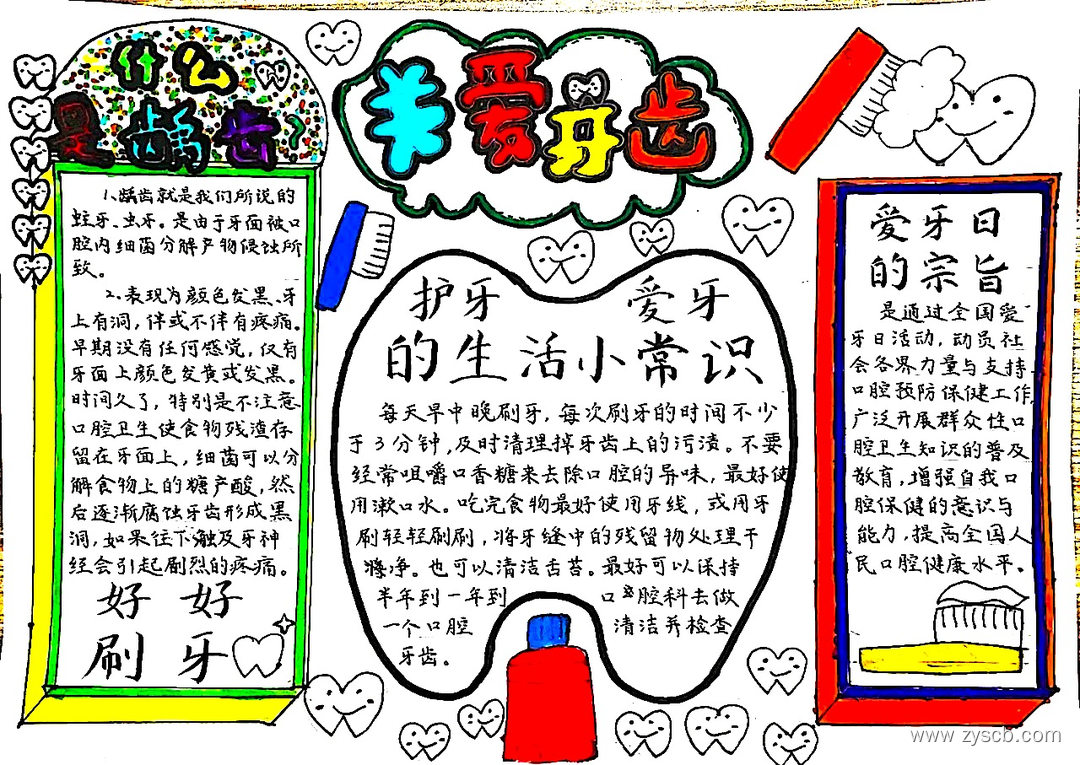 关爱牙齿
什么
是龋齿?
1.龋齿就是我们所说的
蛀牙、虫牙。是由于牙面被口
腔内细菌分解产物侵蚀所
致。
2.表现为颜色发黑、牙
上有洞，伴或不伴有疼痛。
早期没有任何感觉，仅有
牙面上颜色发黄或发黑。
时间久了，特别是不注意
口腔卫生使食物残渣存
留在牙面上，细菌可以分
解食物上的糖产酸，然
后逐渐腐蚀牙齿形成黑
洞，如果往下触及牙神
经会引起剧烈的疼痛。
好好
刷牙
护牙 爱牙
的生活小常识
每天早中晚刷牙，每次刷牙的时间不少
于3分钟，及时清理掉牙齿上的污渍。不要
经常咀嚼口香糖来去除口腔的异味，最好使
用漱口水。吃完食物最好使用牙线，或用牙
刷轻轻刷刷，将牙缝中的残留物处理干
净。也可以清洁舌苔。最好可以保持
半年到一年到 口腔科去做
一个口腔 清洁并检查
牙齿。
爱牙日
的宗旨
是通过全国爱
牙日活动，动员社
会各界力量与支持
口腔预防保健工作，
广泛开展群众性口
腔卫生知识的普及
教育，增强自我口
腔保健的意识与
能力，提高全国人
民口腔健康水平。
www.zyscb.com